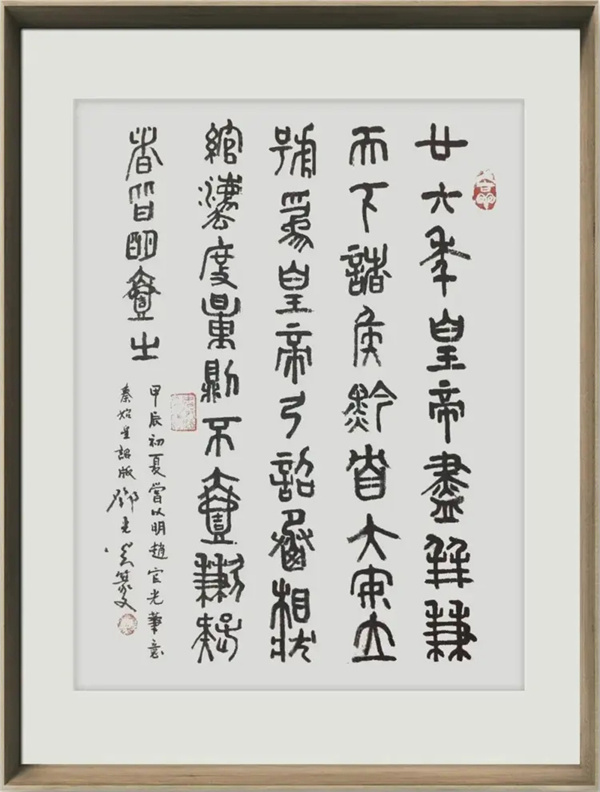 廿六年皇帝盡并兼
天下諸侯黔首大安立
號為皇帝乃詔丞相狀
綰灋度量則不壹歉疑
者皆明壹之
甲辰初夏嘗以明趙宦光筆意
秦始皇詔版